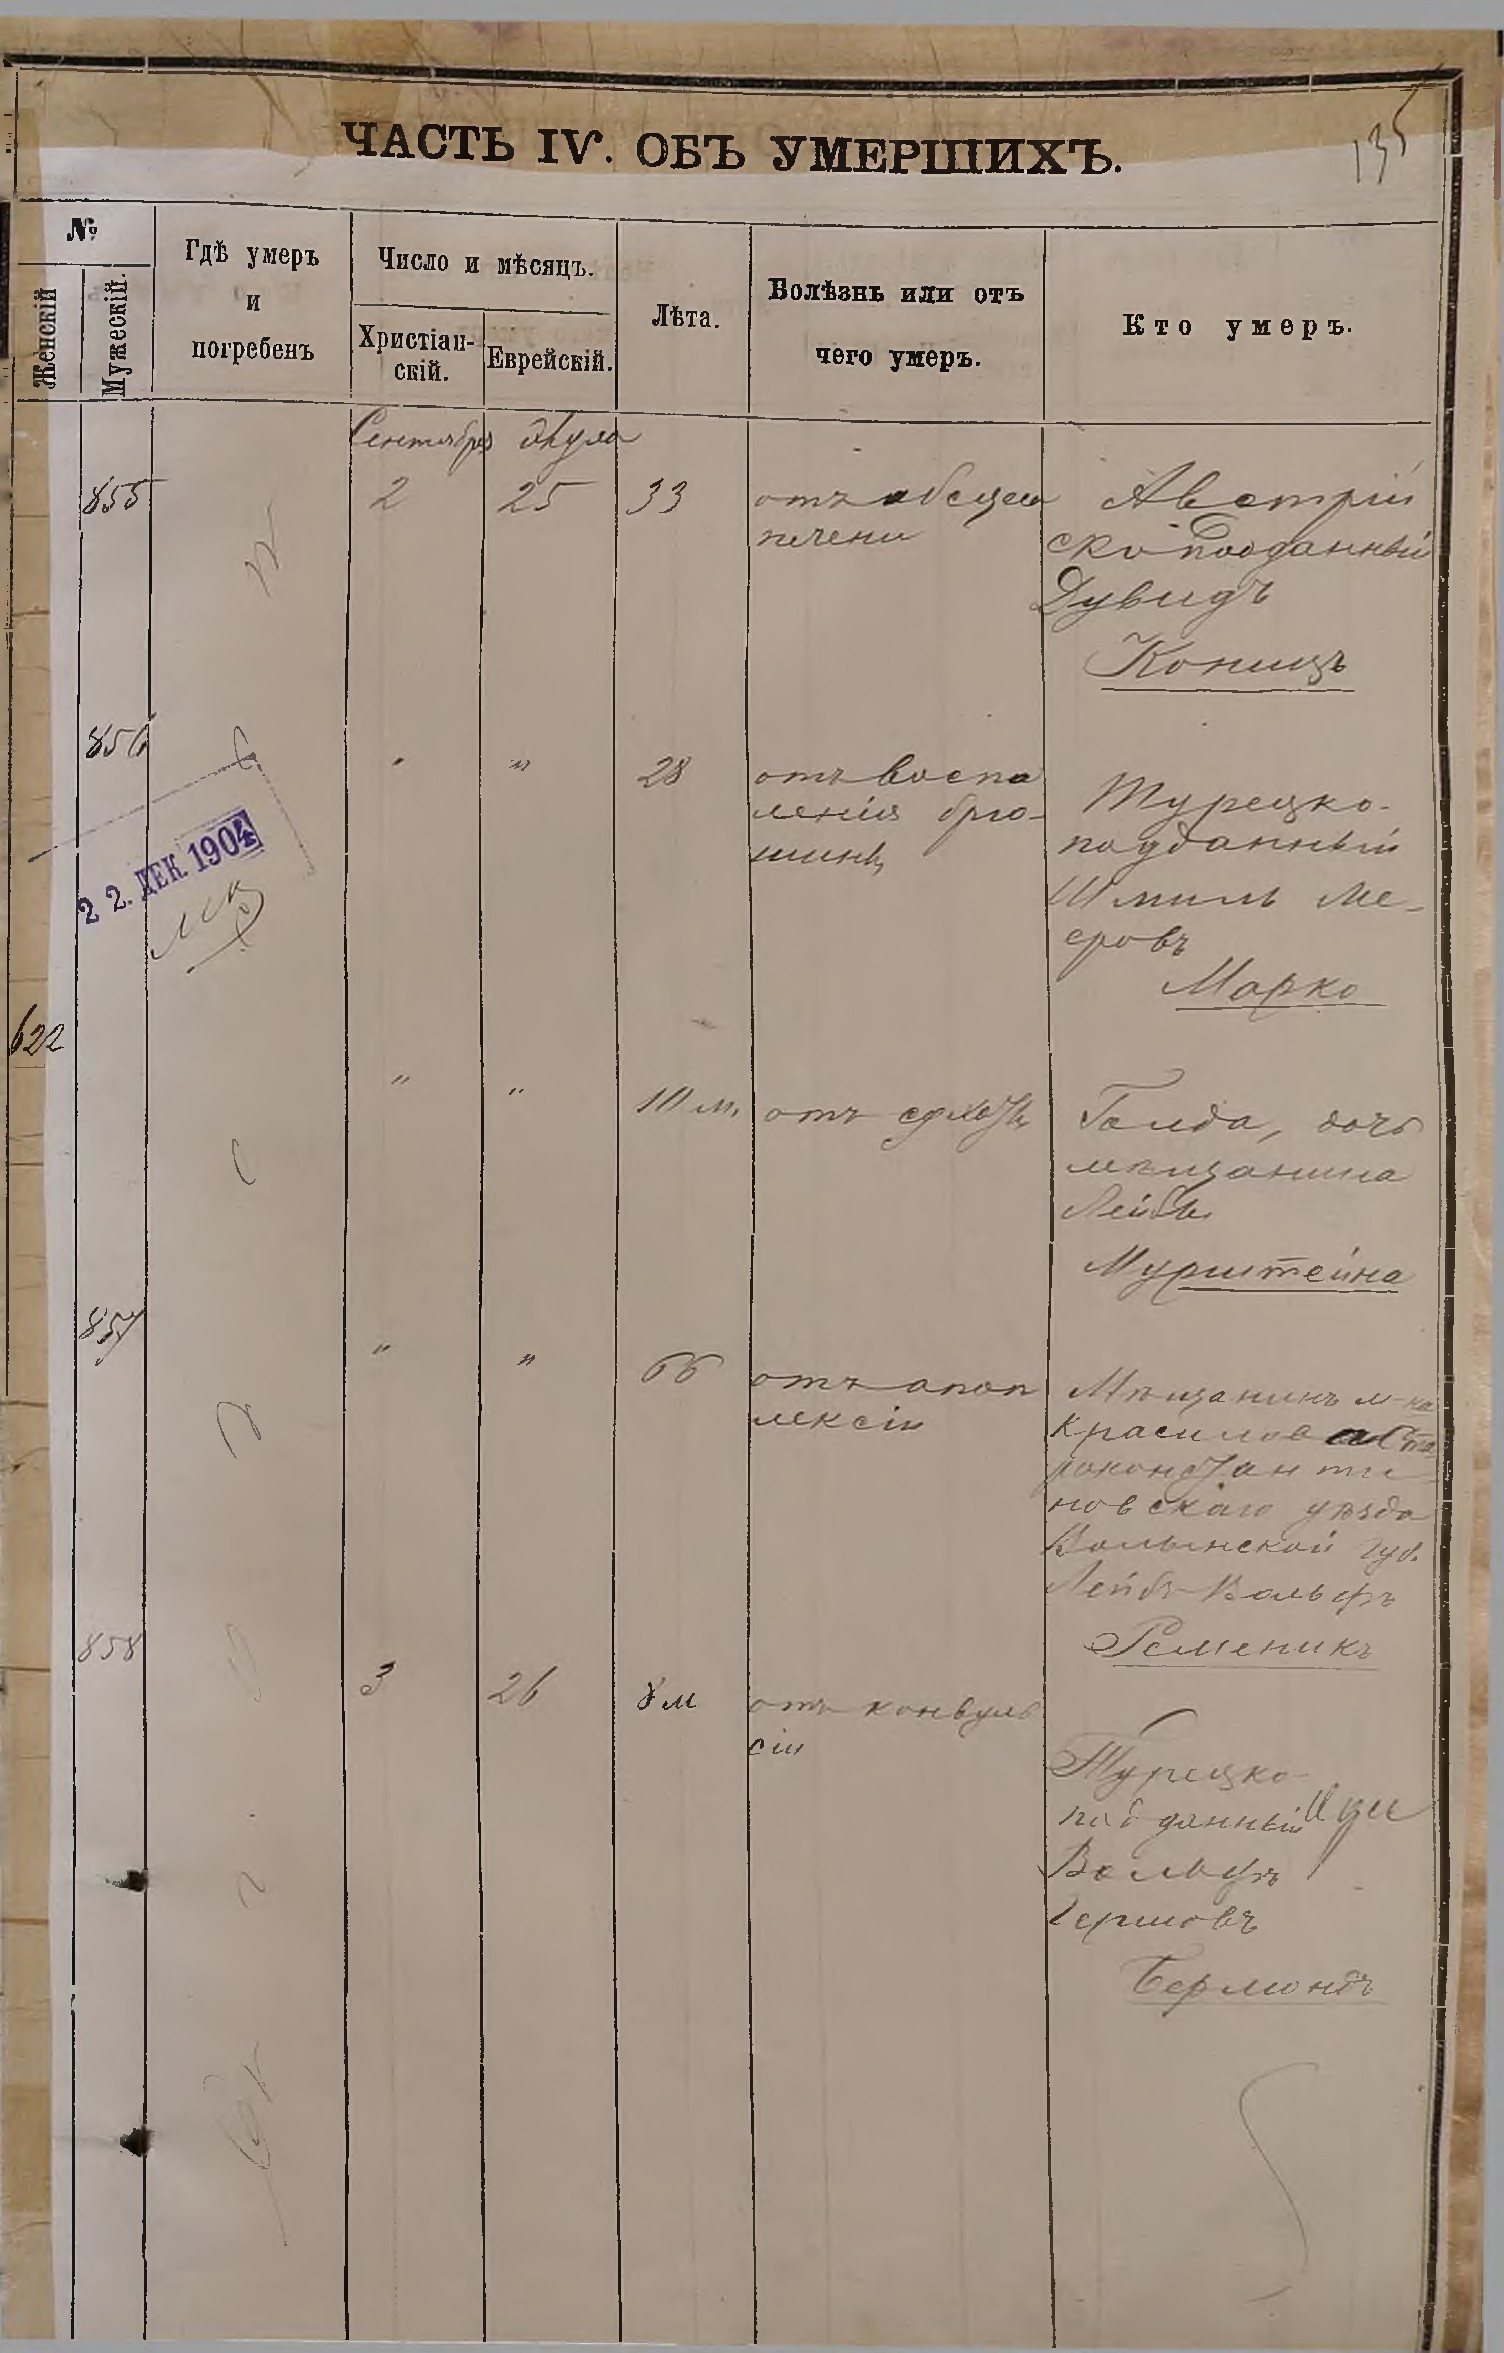 135
ЧАСТЬ IV. ОБЪ УМЕРШИХЪ.
№
Женскій
Мужескій.
Гдѣ умеръ
и
погребенъ
Число и мѣсяцъ.
Христіан-
скій.
Еврейскій.
Лѣта.
Болѣзнь или отъ
чего умеръ.
Кто умеръ.
Сентября
855
2
25
33
отъ абсцеса
печени
Австрій
ско подданный
Дувидъ
Коницъ
856
"
"
28
отъ воспа
ленія брю-
шины
Турецко-
подданный
Шмиль Ме-
еровъ
Марко
22. ДЕК. 1904
622
"
"
10 м.
отъ
Голда, дочь
мѣщанина
Лейбы
Мурштейна
857
"
"
66
отъ апоп
лексіи
Мѣщанинъ м-ка
Красилова Ста
роконстанти
новскаго уѣзда
Волынской губ.
Лейбъ Вольфъ
Ременикъ
858
3
26
8 м
отъ конвуль
сіи
Турецко-
подданный Ицы
Вольфъ
Гершовъ
Бермондъ